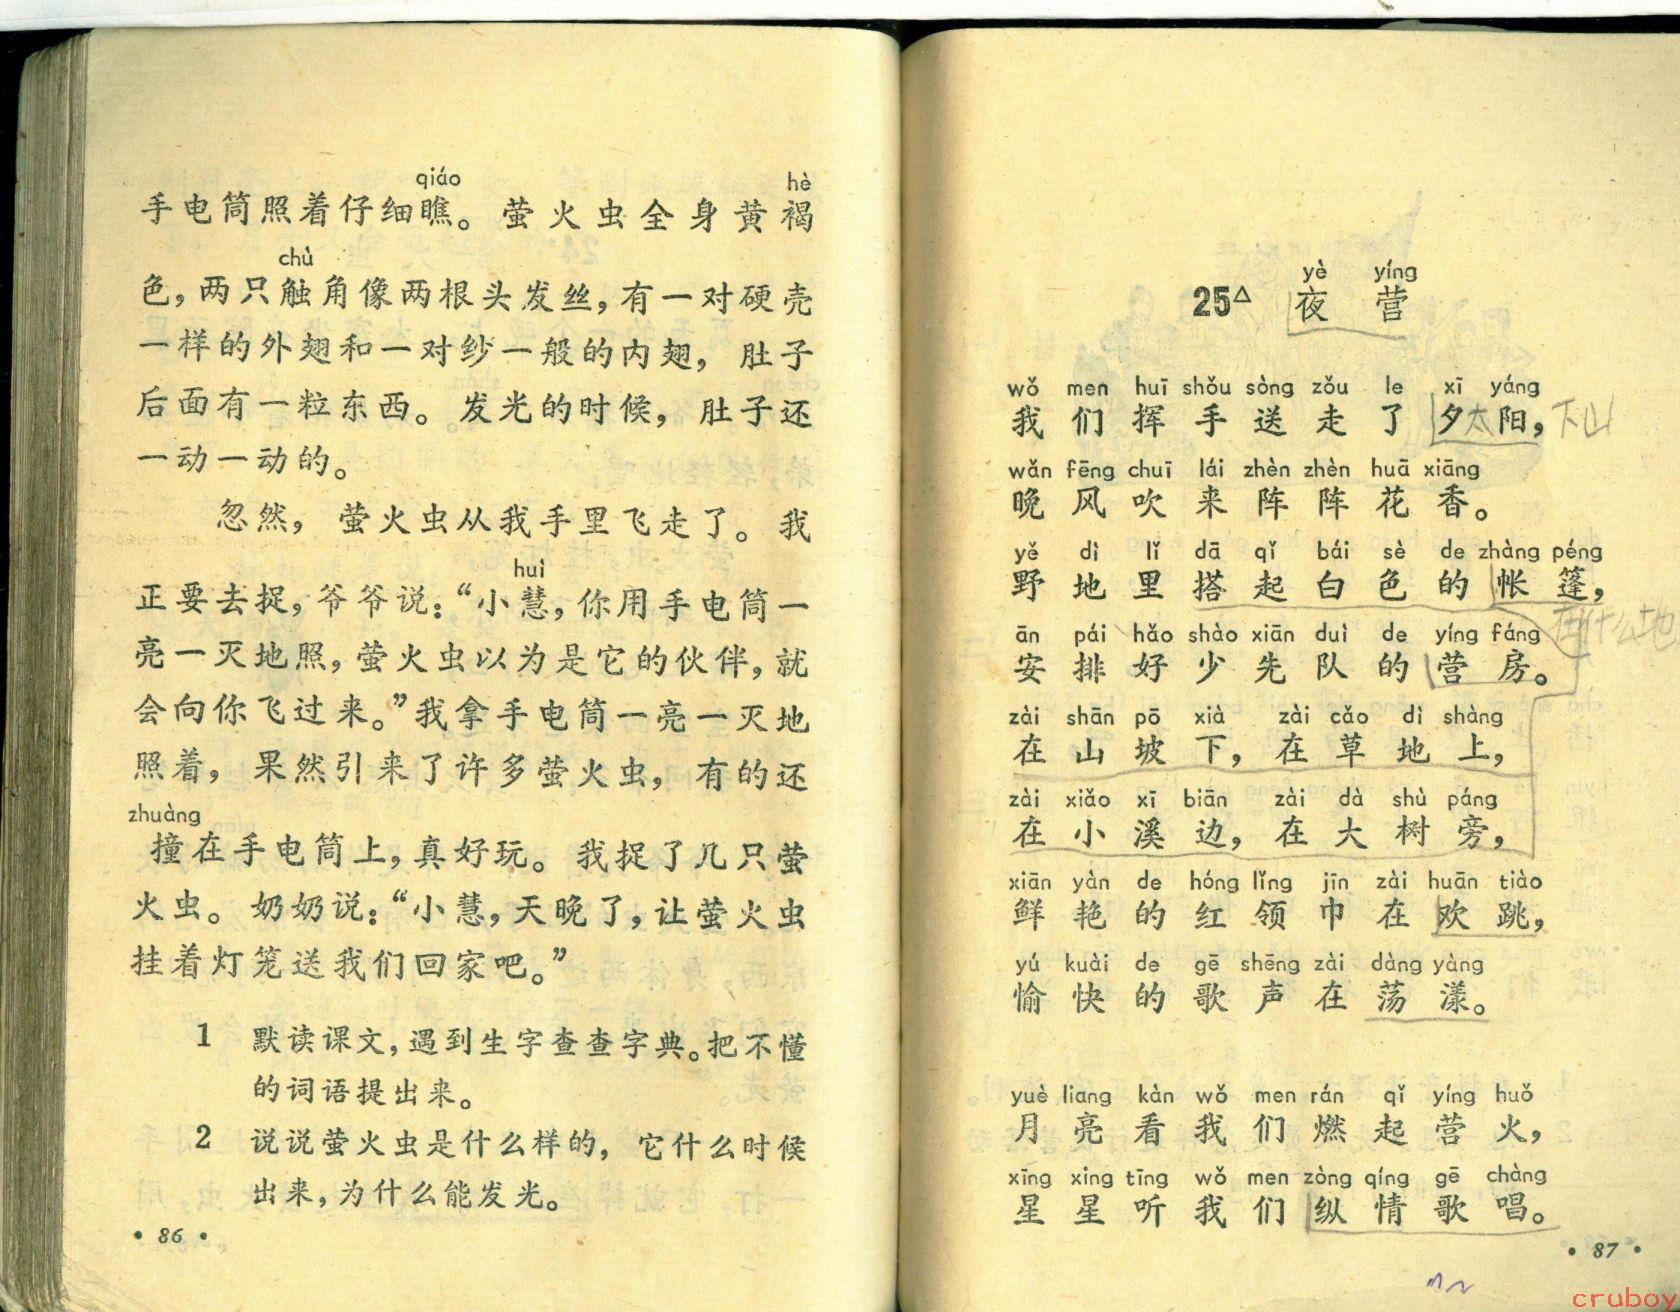 qiáo hè
手电筒照着仔细瞧。萤火虫全身黄褐
chù
色，两只触角像两根头发丝，有一对硬壳
一样的外翅和一对纱一般的内翅，肚子
后面有一粒东西。发光的时候，肚子还
一动一动的。
忽然，萤火虫从我手里飞走了。我
huì
正要去捉，爷爷说：“小慧，你用手电筒一
亮一灭地照，萤火虫以为是它的伙伴，就
会向你飞过来。”我拿手电筒一亮一灭地
照着，果然引来了许多萤火虫，有的还
zhuàng
撞在手电筒上，真好玩。我捉了几只萤
火虫。奶奶说：“小慧，天晚了，让萤火虫
挂着灯笼送我们回家吧。”
1 默读课文，遇到生字查查字典。把不懂
的词语提出来。
2 说说萤火虫是什么样的，它什么时候
出来，为什么能发光。
• 86 •
yè yíng
25△ 夜营
wǒ men huī shǒu sòng zǒu le xī yáng
我们挥手送走了夕阳，
太 下山
wǎn fēng chuī lái zhèn zhèn huā xiāng
晚风吹来阵阵花香。
yě dì lǐ dā qǐ bái sè de zhàng péng
野地里搭起白色的帐篷，
在什么地
ān pái hǎo shào xiān duì de yíng fáng
安排好少先队的营房。
zài shān pō xià zài cǎo dì shàng
在山坡下，在草地上，
zài xiǎo xī biān zài dà shù páng
在小溪边，在大树旁，
xiān yàn de hóng lǐng jīn zài huān tiào
鲜艳的红领巾在欢跳，
yú kuài de gē shēng zài dàng yàng
愉快的歌声在荡漾。
yuè liang kàn wǒ men rán qǐ yíng huǒ
月亮看我们燃起营火，
xīng xing tīng wǒ men zòng qíng gē chàng
星星听我们纵情歌唱。
• 87 •
cruboy